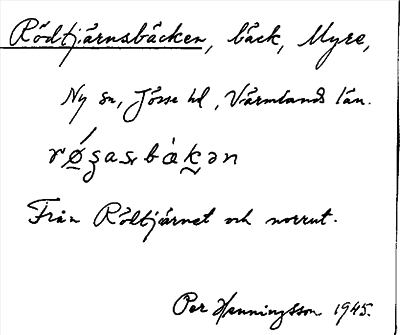 Rödtjärnsbäcken, bäck, Myre,
Ny sn, Jösse hd, Värmlands län.
Från Rödtjärnet och norrut.
Per Henningsson 1945.